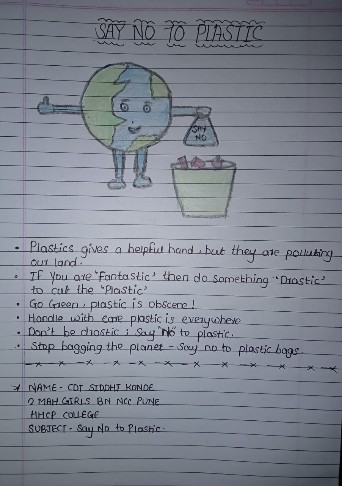 SAY NO TO PLASTIC
SAY
NO
• Plastics gives a helpful hand, but they are polluting
our land.
• If you are "Fantastic" then do something "Drastic"
to cut the "Plastic"
• Go Green, plastic is obscene!
• Handle with care plastic is everywhere
• Don't be drastic; say 'No' to plastic.
• Stop bagging the planet - Say no to plastic bags
NAME - CDT SIDDHI KONDE
2 MAH GIRLS BN NCC PUNE
HHCP COLLEGE
SUBJECT - Say No to Plastic.